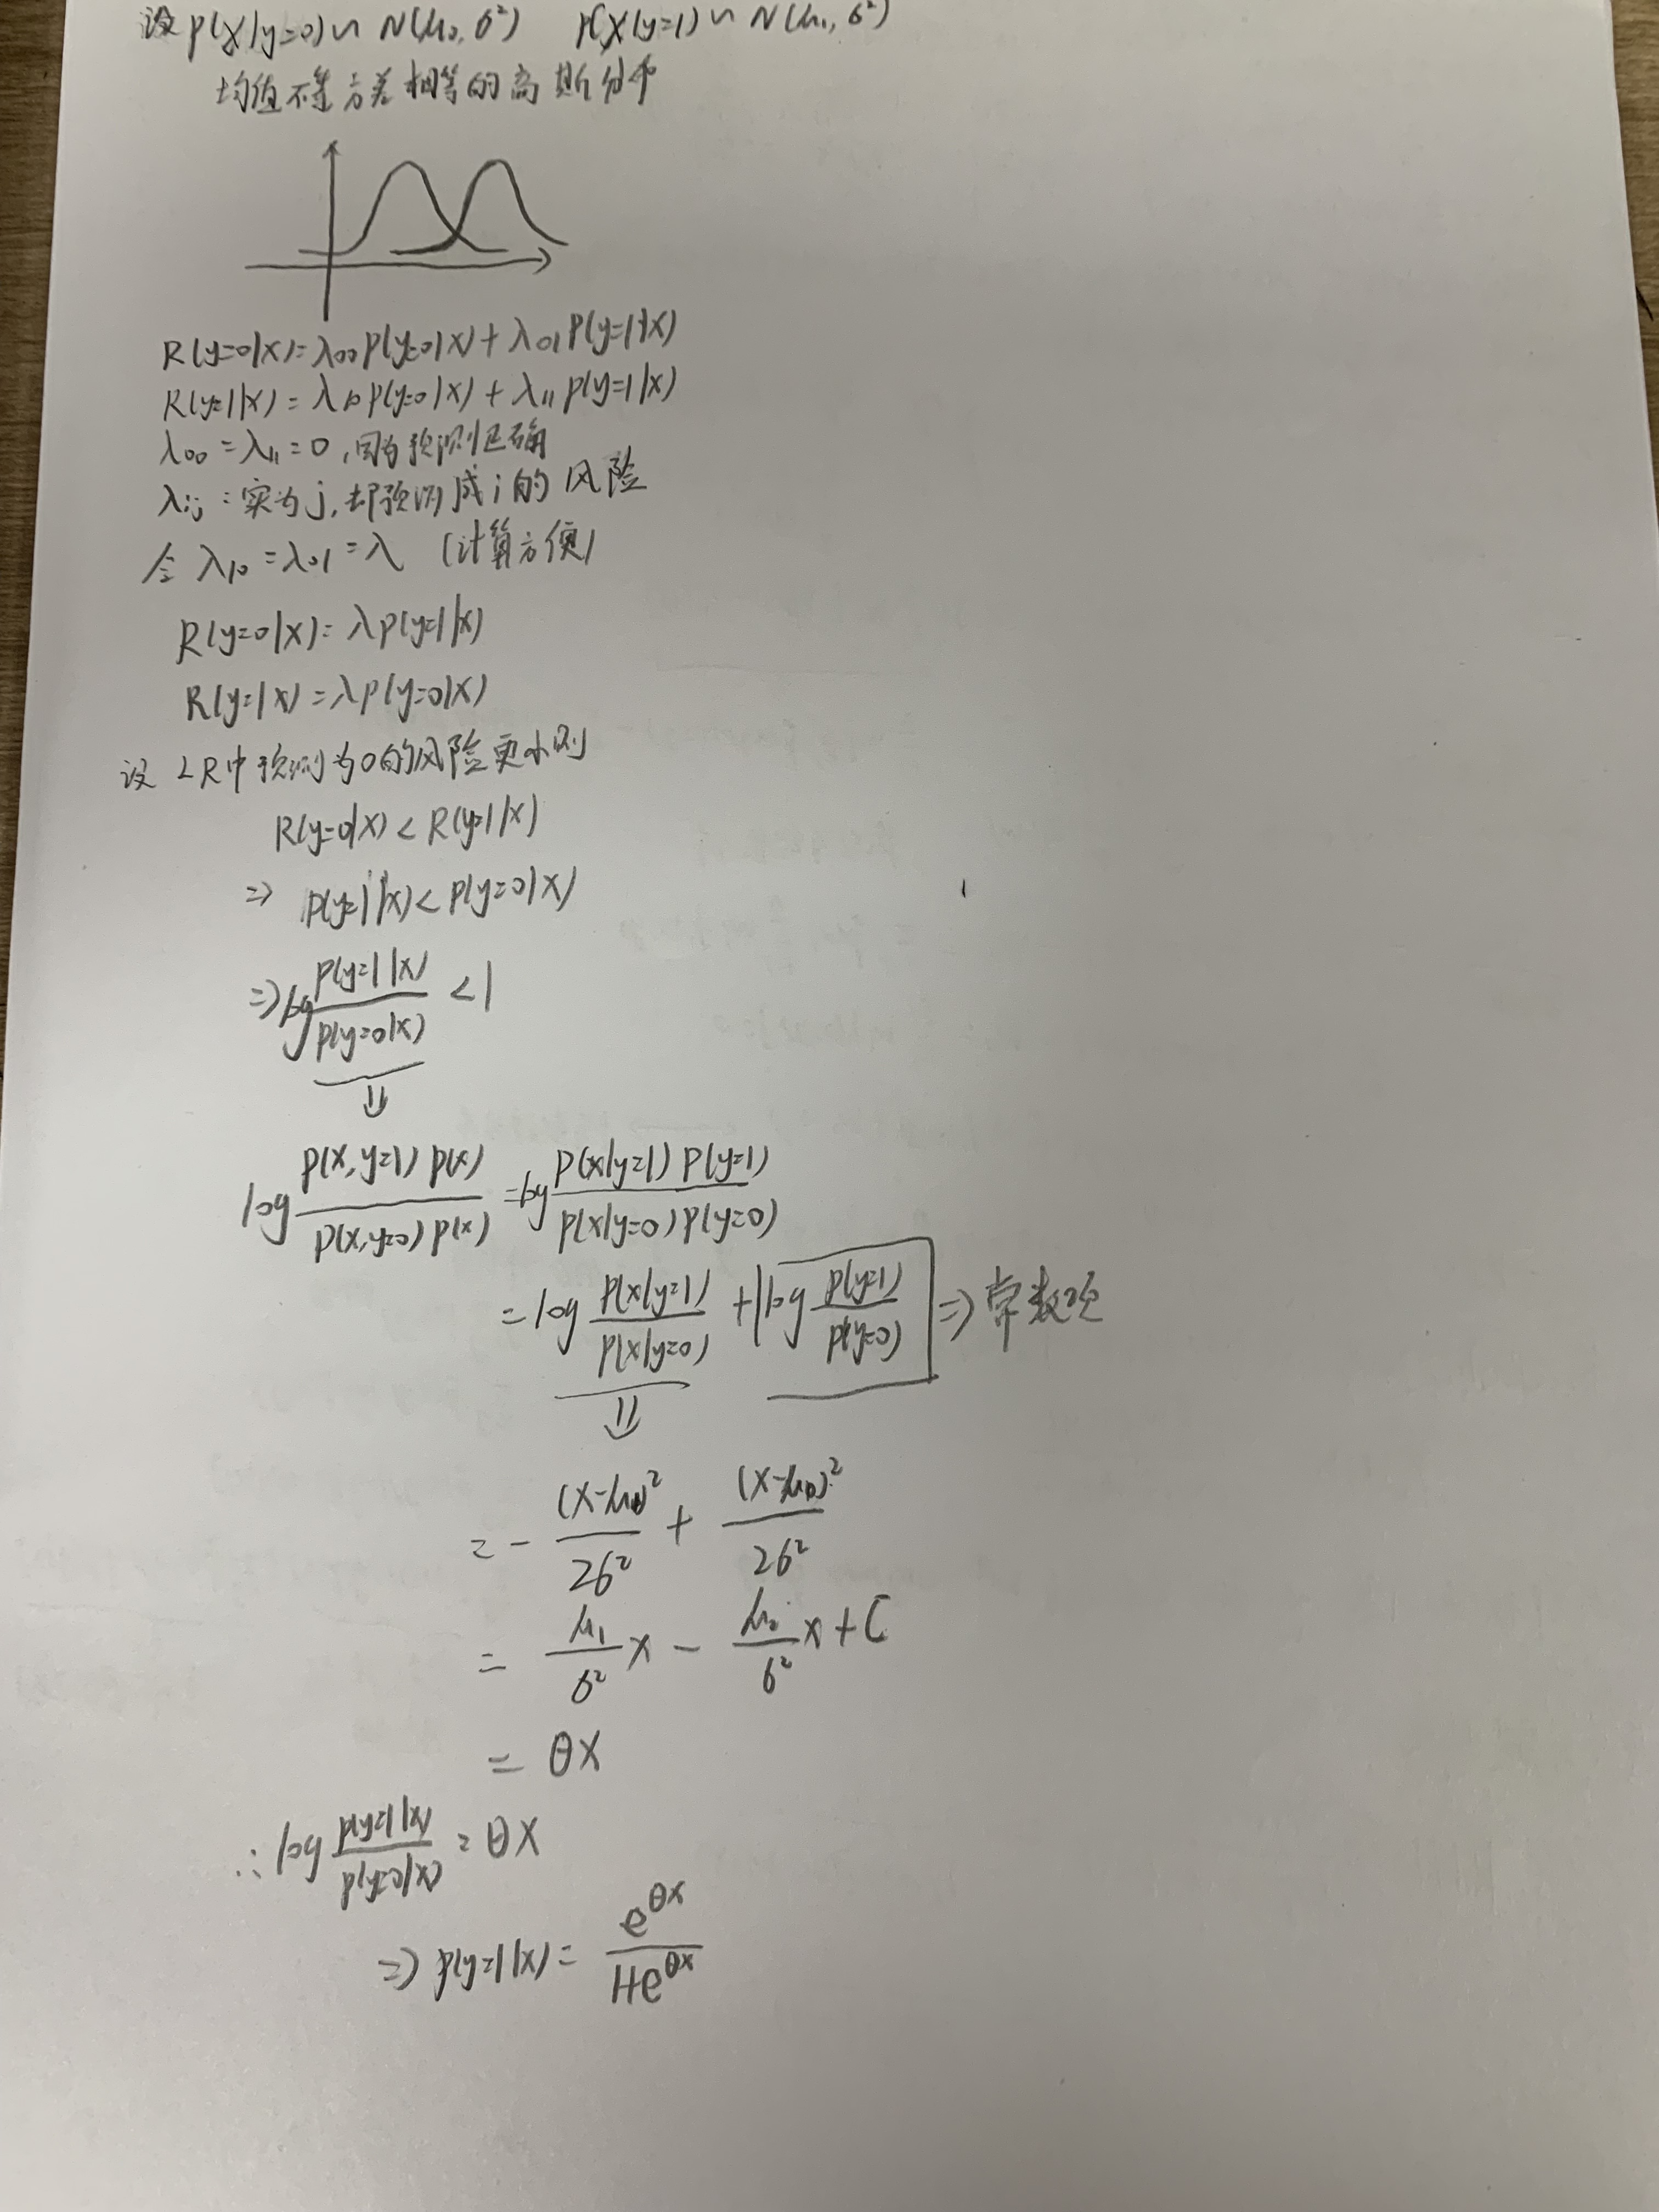 设 p(x|y=0) ~ N(μ₀, σ²)  p(x|y=1) ~ N(μ₁, σ²)
均值不等方差相等的高斯分布
R(y=0|x) = λ₀₀ p(y=0|x) + λ₀₁ p(y=1|x)
R(y=1|x) = λ₁₀ p(y=0|x) + λ₁₁ p(y=1|x)
λ₀₀ = λ₁₁ = 0 ,因为预测正确
λij : 实为 j, 却预测成 i 的风险
令 λ₁₀ = λ₀₁ = λ (计算方便)
R(y=0|x) = λ p(y=1|x)
R(y=1|x) = λ p(y=0|x)
设 LR中预测为0的风险更小则
R(y=0|x) < R(y=1|x)
⇒ p(y=1|x) < p(y=0|x)
⇒ log p(y=1|x) / p(y=0|x) < 1
⇓
log p(x,y=1) p(x) / p(x,y=0) p(x) = log p(x|y=1) p(y=1) / p(x|y=0) p(y=0)
= log p(x|y=1) / p(x|y=0) + log p(y=1) / p(y=0) ⇒ 常数项
⇓
= - (x-μ)² / 2σ² + (x-μ₀)² / 2σ²
= μ₁/σ² x - μ₀/σ² x + C
= θx
∴ log p(y=1|x) / p(y=0|x) = θx
⇒ p(y=1|x) = e^θx / 1+e^θx